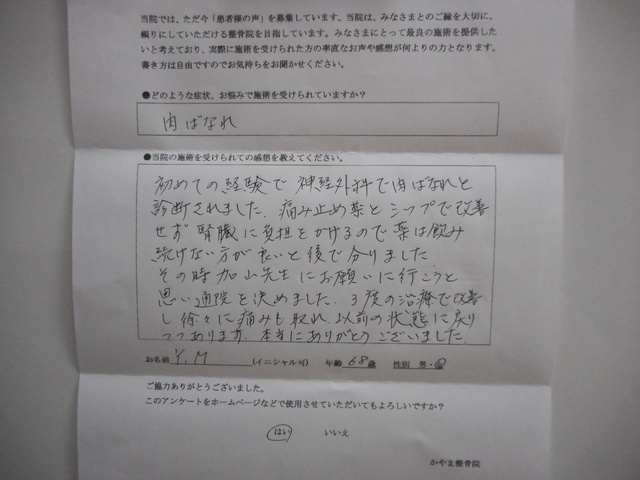 当院では、ただ今「患者様の声」を募集しています。当院は、みなさまとのご縁を大切に、
頼りにしていただける整骨院を目指しています。みなさまにとって最良の施術を提供した
いと考えており、実際に施術を受けられた方の率直なお声や感想が何よりの力となります。
書き方は自由ですのでお気持ちをお聞かせください。
●どのような症状、お悩みで施術を受けられていますか？
肉ばなれ
●当院の施術を受けられての感想を教えてください。
初めての経験で神経外科で肉ばなれと
診断されました。痛み止め薬とシップで改善
せず腎臓に負担をかけるので薬は飲み
続けない方が良いと後で分りました
その時加山先生にお願いに行こうと
思い通院を決めました。3度の治療で改善
し徐々に痛みも取れ以前の状態に戻り
つつあります。本当にありがとうございました。
お名前 Y.M (イニシャル可) 年齢 68歳 性別 男・女
ご協力ありがとうございました。
このアンケートをホームページなどで使用させていただいてもよろしいですか？
はい いいえ
かやま整骨院